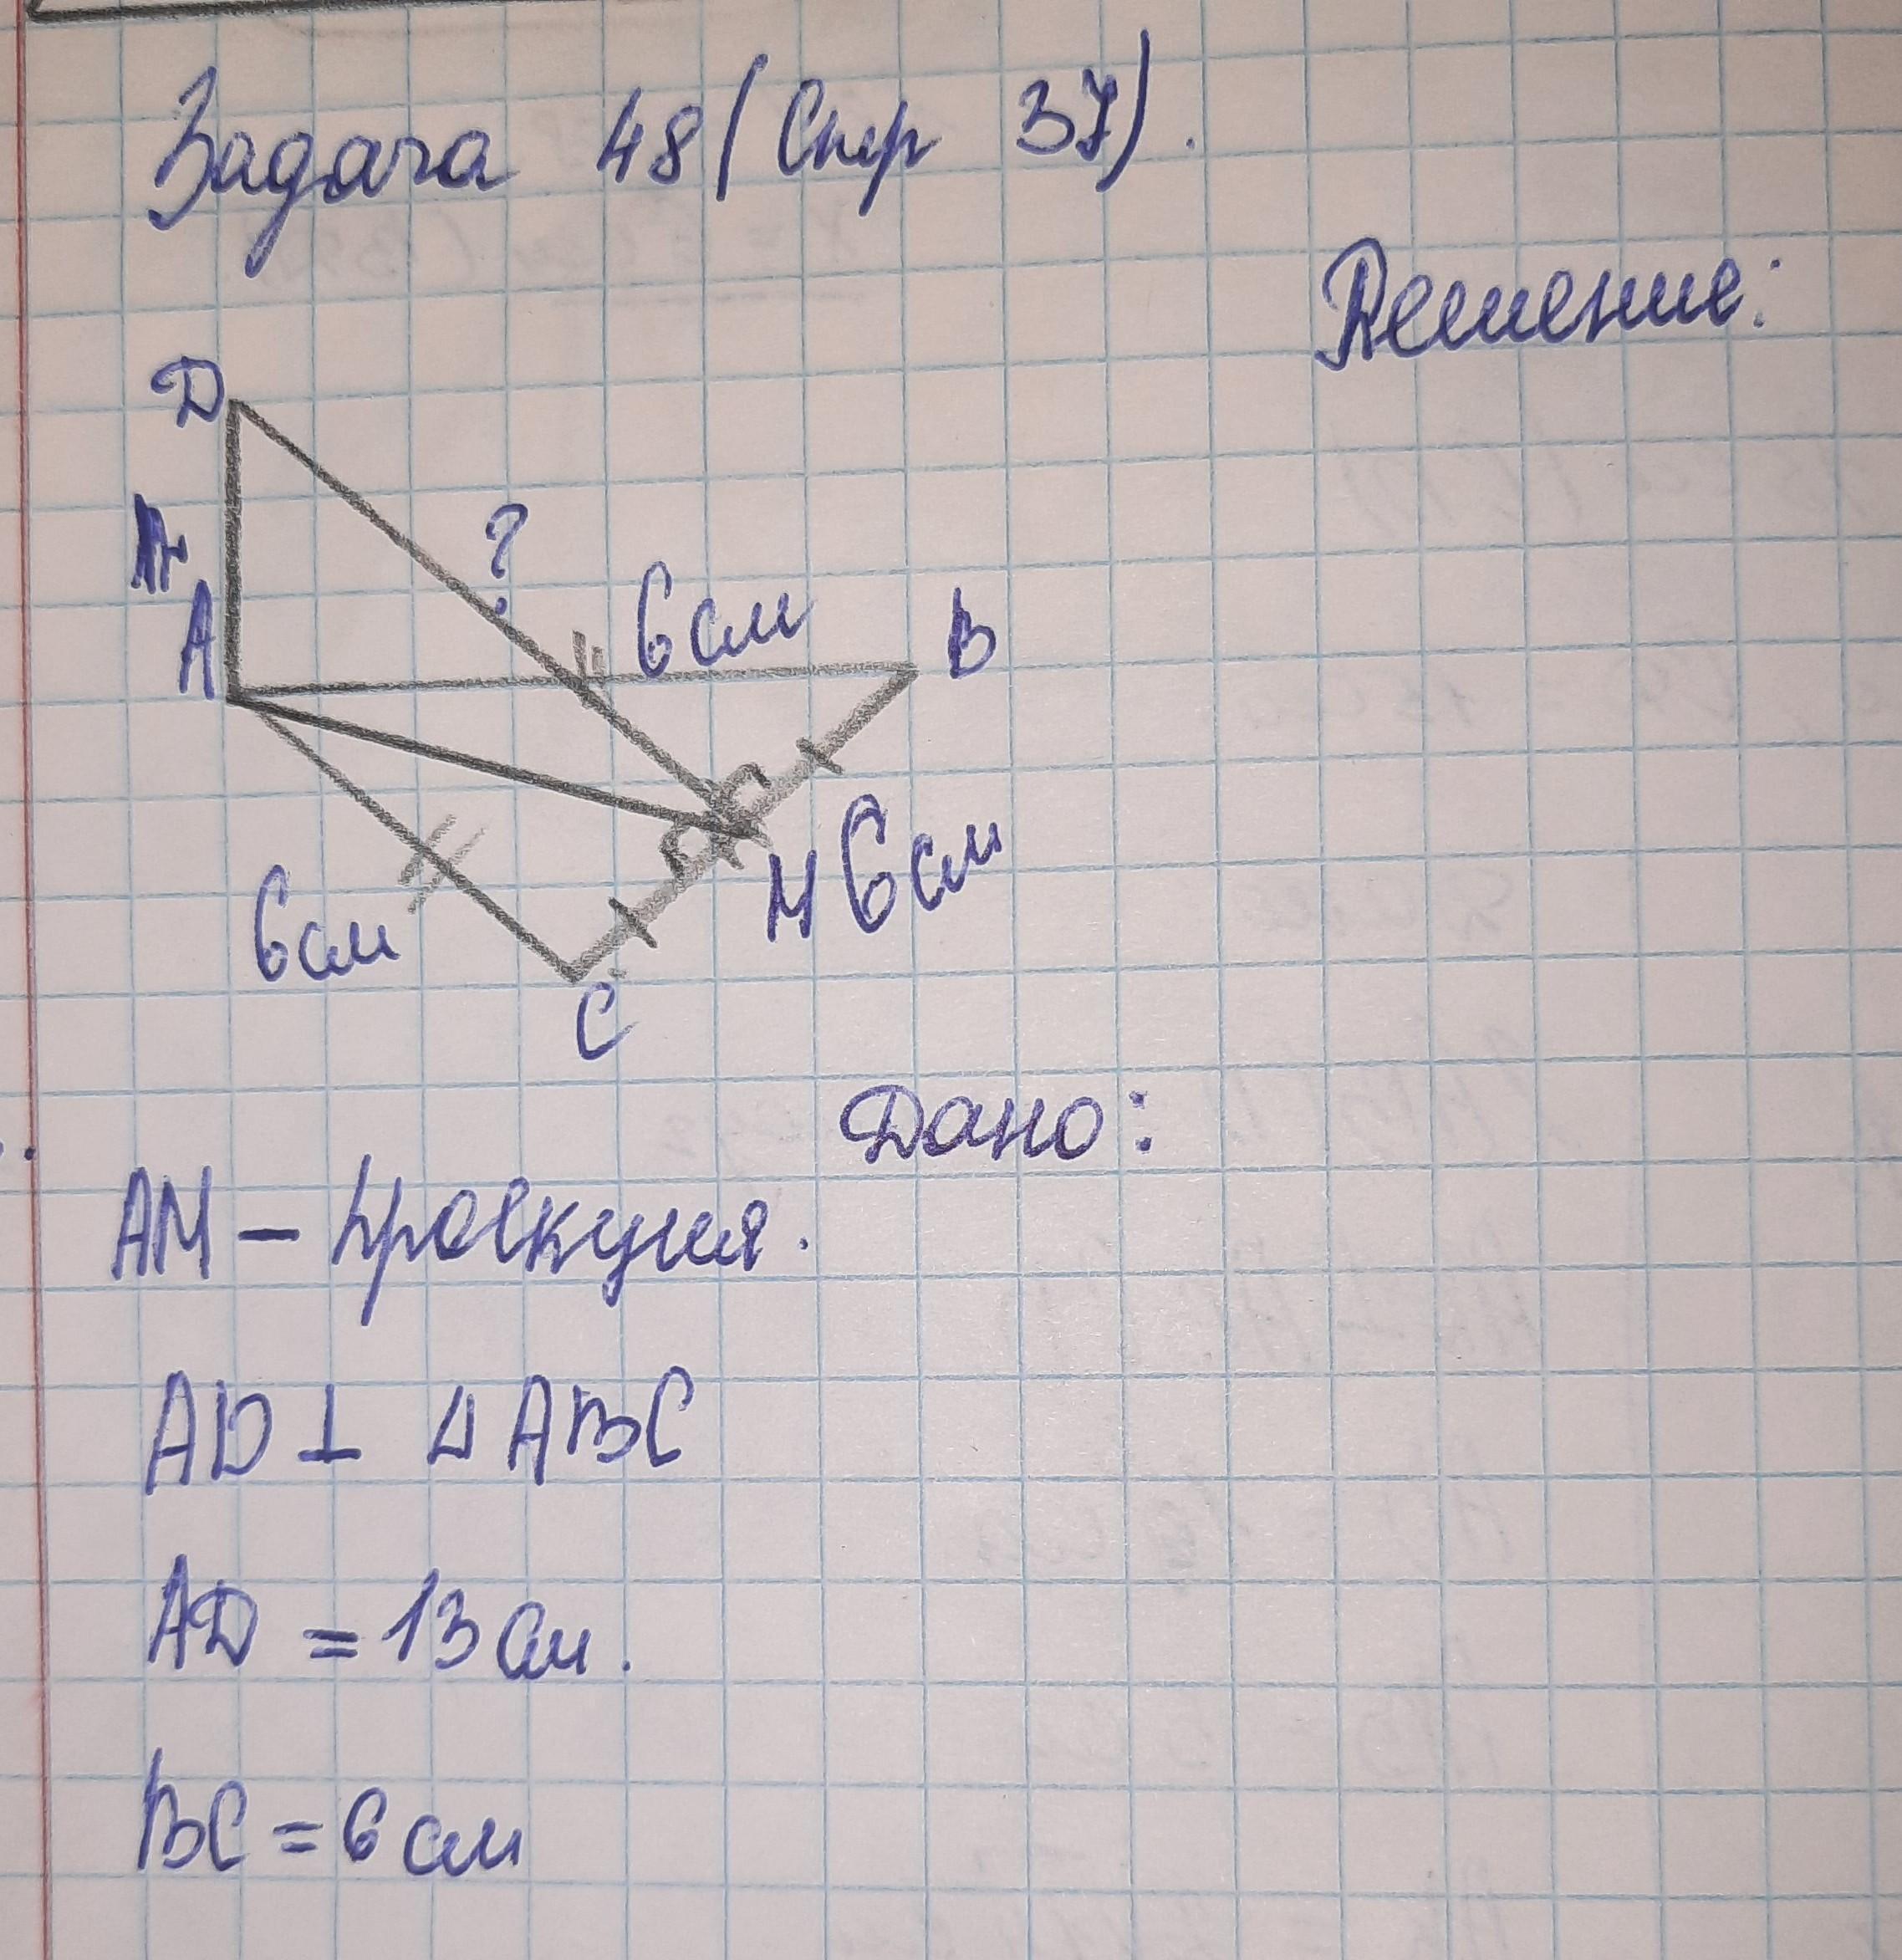 Задача 48 (Стр 37).
Решение:
D
?
A
6 см
B
6 см
M 6 см
C
Дано:
AM – проекция.
AD ⊥ △ABC
AD = 13 см.
BC = 6 см